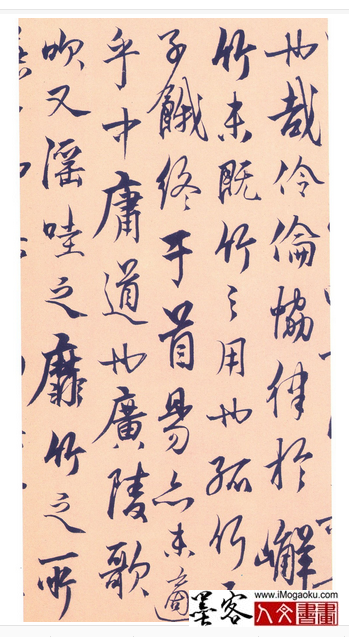 也哉伶倫協律於嶰
竹未既竹之用也孤竹之
子餓終于首昜亦未適
乎中庸道也廣陵歌
吹又滛哇之靡竹之所
www.iMogaoku.com
墨客